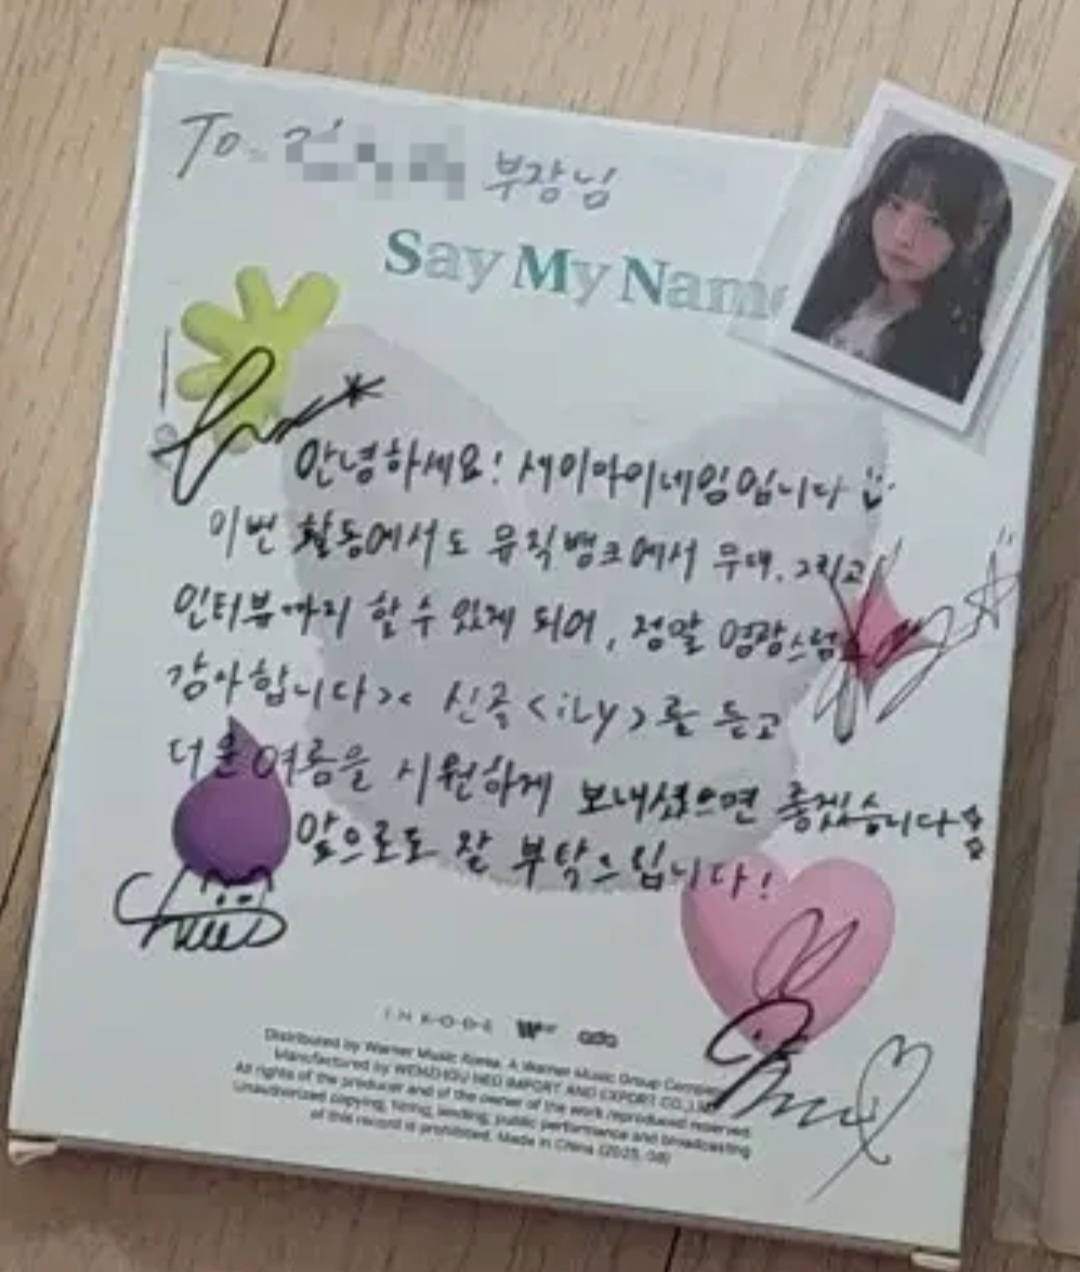 To. 김 부장님
Say My Name
안녕하세요! 세이마이네임입니다
이번 활동에서도 뮤직뱅크에서 무대, 그리고
인터뷰까지 할 수 있게 되어, 정말 영광스럽고
감사합니다>< 신곡 <iLy>를 듣고
더운 여름을 시원하게 보내셨으면 좋겠습니다
앞으로도 잘 부탁드립니다!
INKODE
Distributed by Warner Music Korea. A Warner Music Group Company
Manufactured by WENZHOU NEO IMPORT AND EXPORT CO., LTD
All rights of the producer and of the owner of the work reproduced reserved.
Unauthorized copying, hiring, lending, public performance and broadcasting
of this record is prohibited. Made in China (2025. 08)